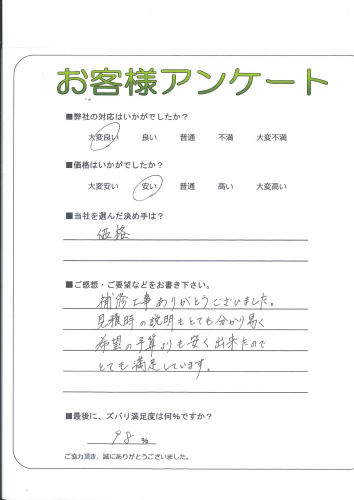 お客様アンケート
■弊社の対応はいかがでしたか？
大変良い 良い 普通 不満 大変不満
■価格はいかがでしたか？
大変安い 安い 普通 高い 大変高い
■当社を選んだ決め手は？
価格
■ご感想・ご要望などをお書き下さい。
補修工事ありがとうございました。
見積時の説明もとても分かり易く
希望の予算よりも安く出来たので
とても満足しています。
■最後に、ズバリ満足度は何％ですか？
98 %
ご協力頂き、誠にありがとうございました。